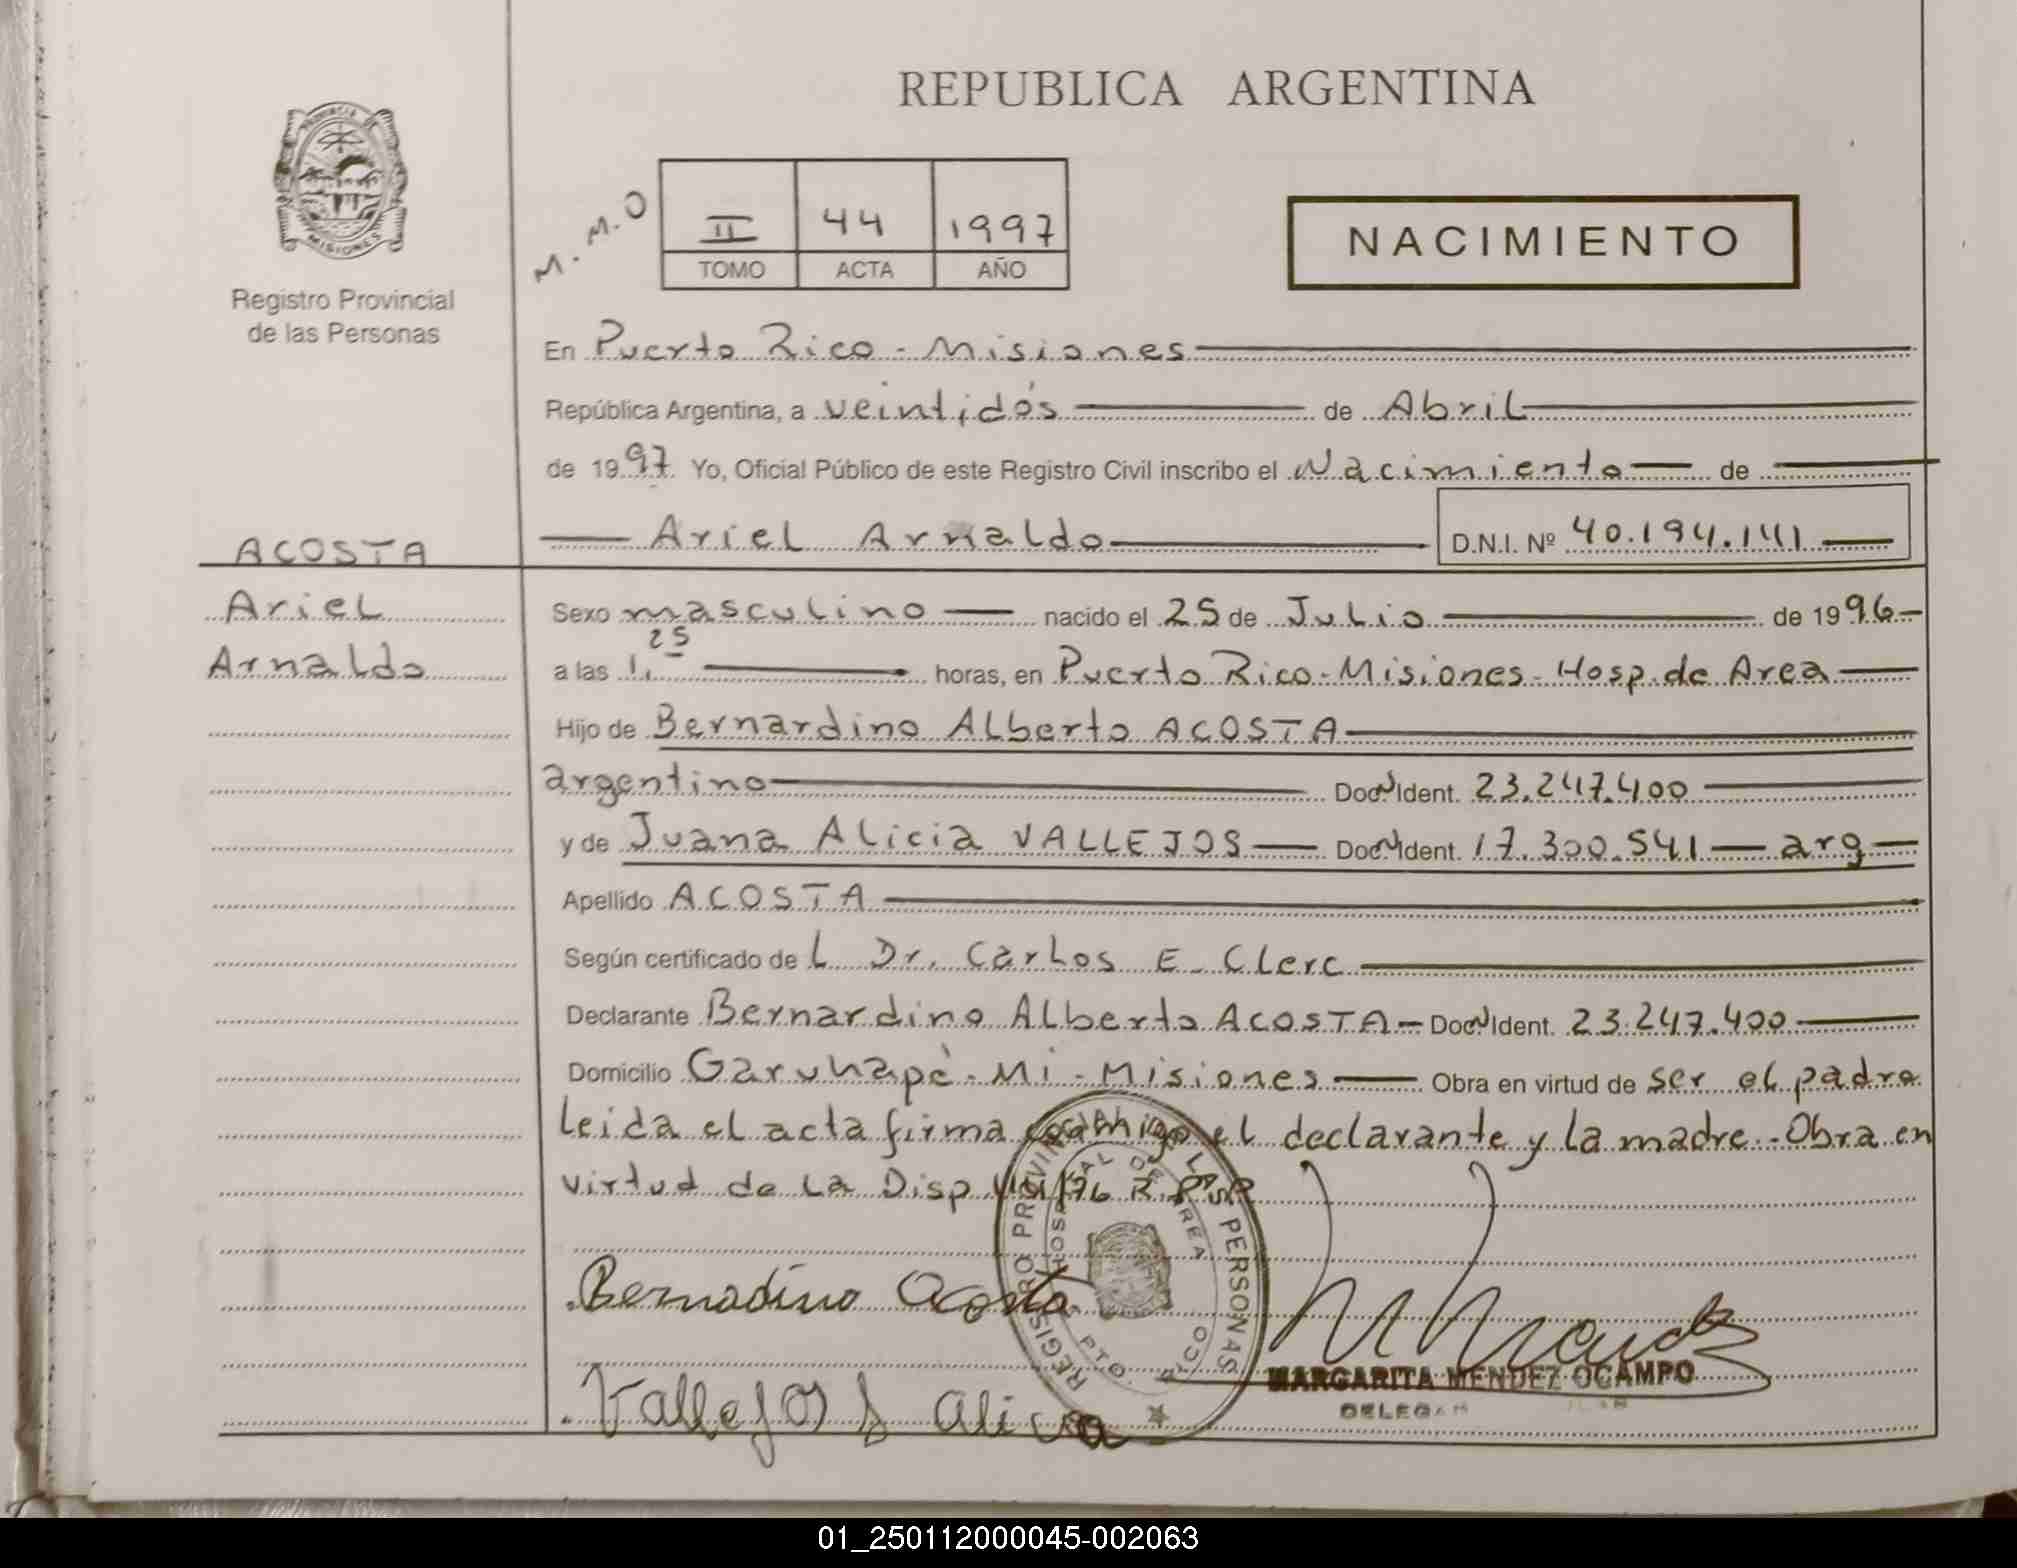 REPUBLICA ARGENTINA
PROVINCIA DE
MISIONES
Registro Provincial
de las Personas
M. M. O
II 44 1997
TOMO ACTA AÑO
NACIMIENTO
En Puerto Rico - Misiones
República Argentina, a veintidós de Abril
de 1997 Yo, Oficial Público de este Registro Civil inscribo el Nacimiento de
ACOSTA
Ariel
Arnaldo
Ariel Arnaldo D.N.I. Nº 40.194.141
Sexo masculino nacido el 25 de Julio de 1996
a las 1,25 horas, en Puerto Rico - Misiones - Hosp. de Area
Hijo de Bernardino Alberto ACOSTA
argentino Doc N Ident. 23.247.400
y de Juana Alicia VALLEJOS Doc N Ident. 17.300.541 arg
Apellido ACOSTA
Según certificado de L Dr. Carlos E. Clerc
Declarante Bernardino Alberto ACOSTA Doc N Ident. 23.247.400
Domicilio Garuhapé - Mi - Misiones Obra en virtud de ser el padre
leida el acta firma conmigo el declarante y la madre. - Obra en
virtud de la Disp
REGISTRO PROVINCIAL DE LAS PERSONAS
HOSPITAL DE AREA
PTO. RICO
Bernadino Acosta
Vallejos J Alicia
MARGARITA MENDEZ OCAMPO
01_250112000045-002063